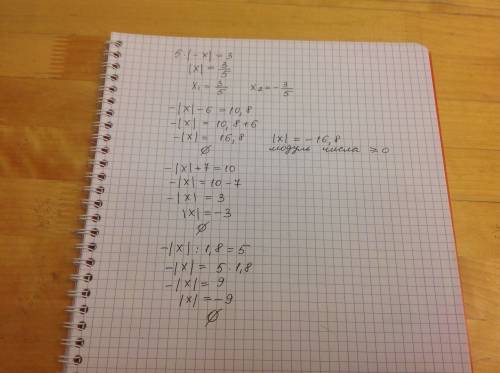 5·|-x| = 3
|x| = 3/5
x₁ = 3/5 x₂ = -3/5
-|x| - 6 = 10,8
-|x| = 10,8 + 6
-|x| = 16,8 |x| = -16,8
∅ модуль числа ⩾ 0
-|x| + 7 = 10
-|x| = 10 - 7
-|x| = 3
|x| = -3
∅
-|x| : 1,8 = 5
-|x| = 5·1,8
-|x| = 9
|x| = -9
∅